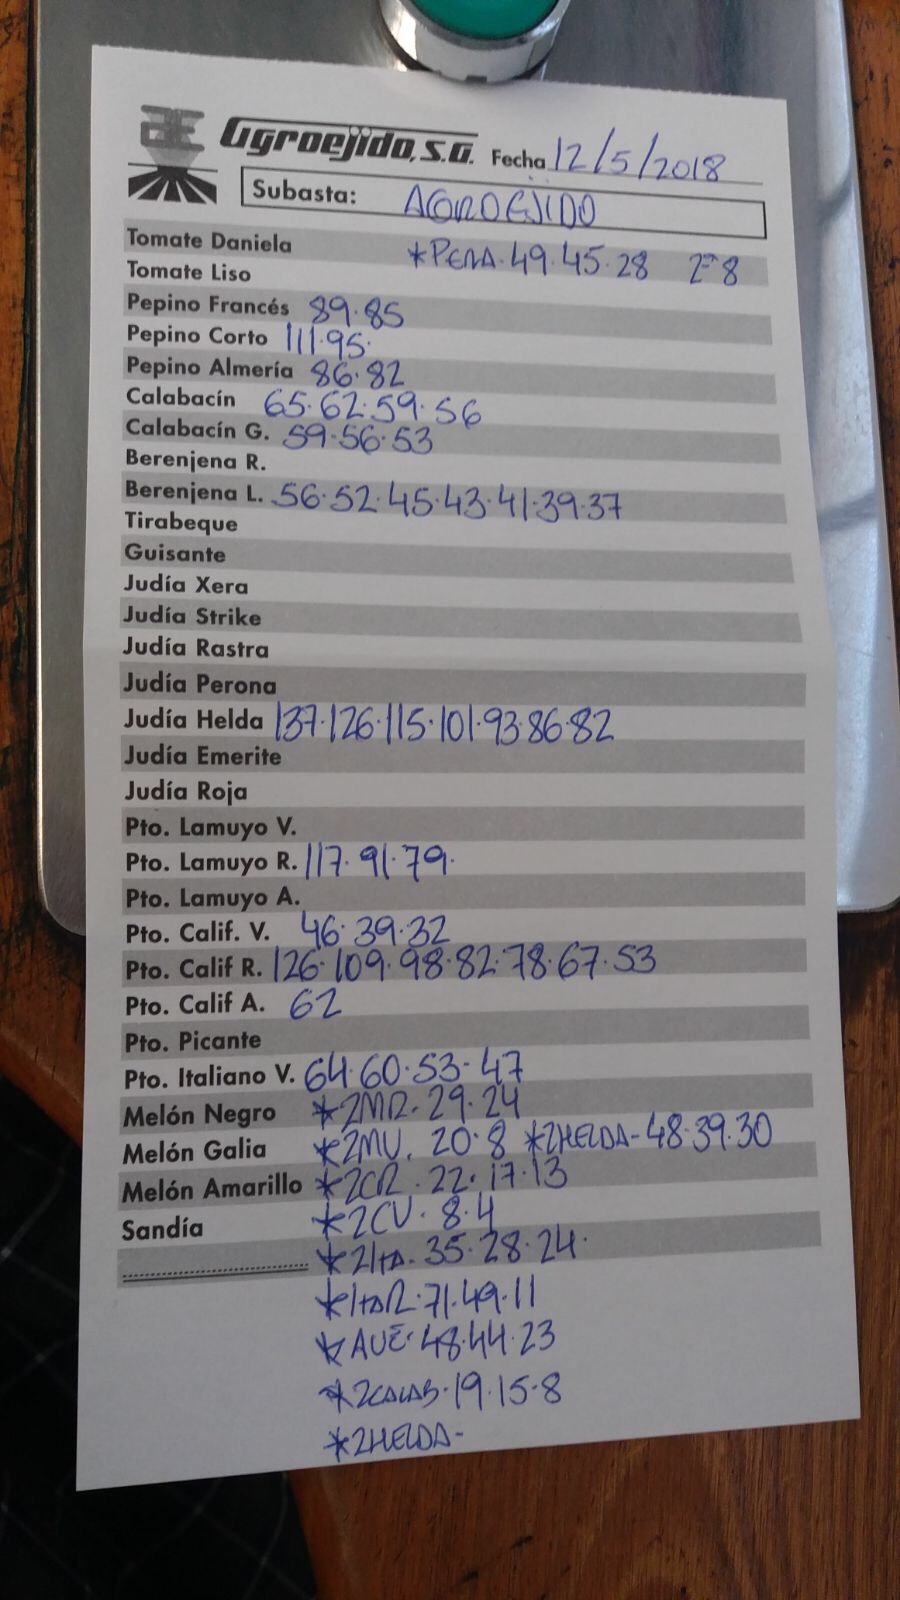 Agroejido, S.A. Fecha 12/5/2018
Subasta: AGROEJIDO
Tomate Daniela *PERA.49.45.28 2ª8
Tomate Liso
Pepino Francés 89.85
Pepino Corto 111.95.
Pepino Almería 86.82
Calabacín 65.62.59.56
Calabacín G. 59.56.53
Berenjena R.
Berenjena L. 56.52.45.43.41.39.37
Tirabeque
Guisante
Judía Xera
Judía Strike
Judía Rastra
Judía Perona
Judía Helda 137.126.115.101.93.86.82
Judía Emerite
Judía Roja
Pto. Lamuyo V.
Pto. Lamuyo R. 117.91.79.
Pto. Lamuyo A.
Pto. Calif. V. 46.39.32
Pto. Calif R. 126.109.98.82.78.67.53
Pto. Calif A. 62
Pto. Picante
Pto. Italiano V. 64.60.53-47
Melón Negro *2MR.29.24
Melón Galia *2MV. 20.8 *2HELDA-48.39.30
Melón Amarillo *2CR.22.17.13
Sandía *2CV.8.4
*2ITA.35.28.24.
*ITAR.71.49.11
*AVE.48.44.23
*2CALAB-19.15-8
*2HELDA-